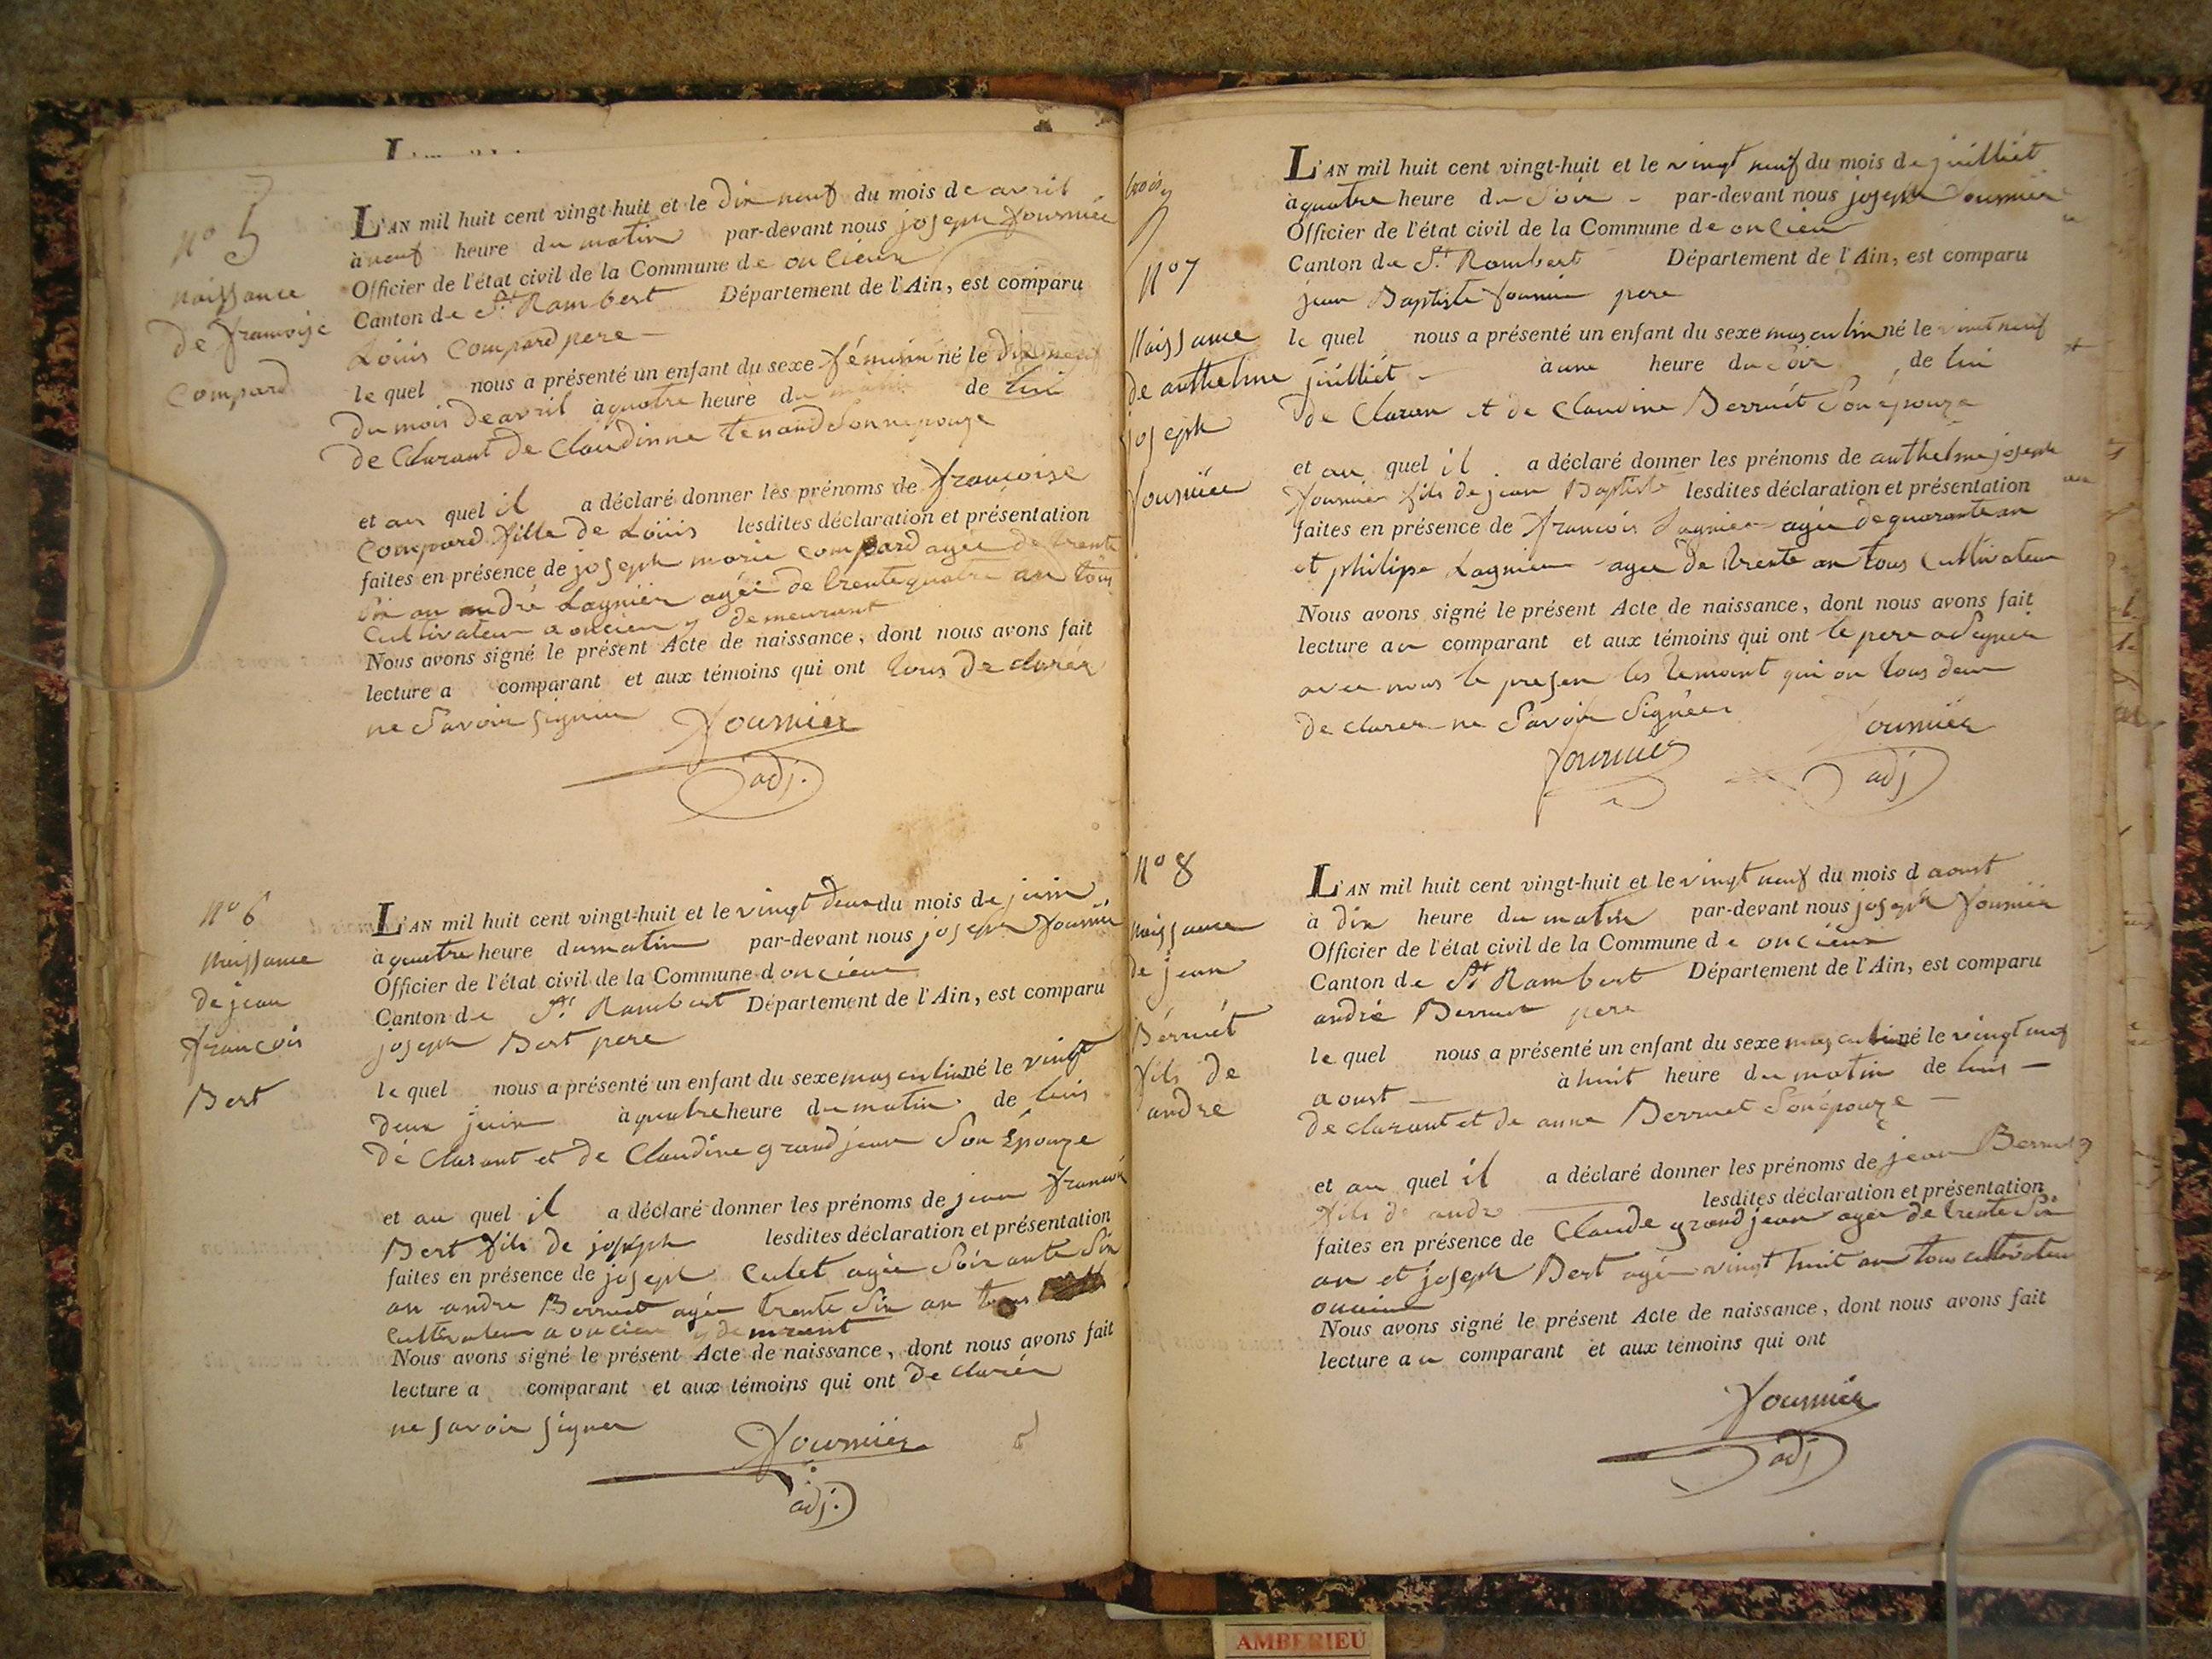 nº 5
naissance
de francoise
Compard
L'AN mil huit cent vingt-huit et le dix neuf du mois de avril
à neuf heure du matin par-devant nous joseph fournier
Officier de l'état civil de la Commune de oncieux
Canton de St. Rambert Département de l'Ain, est comparu
Loüis Compard pere
le quel nous a présenté un enfant du sexe féminin né le dix neuf
du mois de avril à quatre heure du de lui
de Clarant de Claudinne tenand sonnepouze
et au quel il a déclaré donner les prénoms de francoise
Compard fille de Loüis lesdites déclaration et présentation
faites en présence de joseph marie compard agée de trente
six an andré Lagnier agée de trente quatre an tous
Cultivateur a oncieu y demeurant
Nous avons signé le présent Acte de naissance, dont nous avons fait
lecture a comparant et aux témoins qui ont tous de clarér
ne Savoir signier
fournier
adj.
nº 6
Naissance
de jean
francois
Bert
L'AN mil huit cent vingt-huit et le vingt deux du mois de juin
à quatre heure du matin par-devant nous joseph fournier
Officier de l'état civil de la Commune d oncieux
Canton de St. Rambert Département de l'Ain, est comparu
joseph Bert pere
le quel nous a présenté un enfant du sexe masculin né le vingt
deux juin à quatre heure du matin de luis
dé Clarant et de Claudine grandjean Son Epouze
et au quel il a déclaré donner les prénoms de jean francois
Bert fils de joseph lesdites déclaration et présentation
faites en présence de joseph Culet agée Soixante Six
an andre Berruet agée trente Six an tous
Cultivateur a oncieu y demeurant
Nous avons signé le présent Acte de naissance, dont nous avons fait
lecture a comparant et aux témoins qui ont de clarér
ne savoir signer
fournier
adj.
nº 7
Naissance
de anthelme
joseph
fournier
L'AN mil huit cent vingt-huit et le vingt neuf du mois de juilliét
à quatre heure du Soir par-devant nous joseph fournier
Officier de l'état civil de la Commune de oncieu
Canton de St. Rambert Département de l'Ain, est comparu
jean Baptiste fournier pere
le quel nous a présenté un enfant du sexe masculin né le vingt neuf
juilliét à une heure du Soir, de lui
de Claran et de Claudine Berruét Son épouze
et au quel il a déclaré donner les prénoms de anthelme joseph
fournier fils de jean Baptiste lesdites déclaration et présentation
faites en présence de francois Lagnier agée de quarante an
et philipe Lagnier agée de trente an tous Cultivateur
Nous avons signé le présent Acte de naissance, dont nous avons fait
lecture au comparant et aux témoins qui ont le pere a Signér
avec nous le presen les temoint qui on tous deux
de clarer ne Savoir Signéer
fournier
fournier
adj
nº 8
naissance
de jean
Bérruét
fils de
andre
L'AN mil huit cent vingt-huit et le vingt neuf du mois d aoust
à dix heure du matin par-devant nous joseph fournier
Officier de l'état civil de la Commune de oncieux
Canton de St Rambert Département de l'Ain, est comparu
andré Berruet pere
le quel nous a présenté un enfant du sexe masculin né le vingt neuf
aoust à huit heure du matin de luis
de clarant et de anne Berruet Son épouze
et au quel il a déclaré donner les prénoms de jean Berruet
fils de andre lesdites déclaration et présentation
faites en présence de Claude grandjean agée de trente Six
an et joseph Bert agée vingt huit an tous cultivateur
oncieu
Nous avons signé le présent Acte de naissance, dont nous avons fait
lecture au comparant et aux témoins qui ont
fournier
adj
AMBERIEU